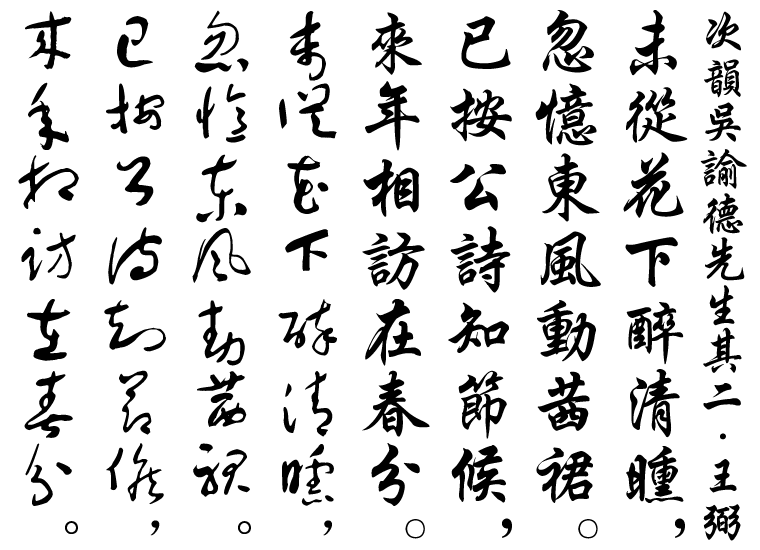 次韻吳諭德先生其二·王弼
未從花下醉清曛，
忽憶東風動茜裙。
已按公詩知節候，
來年相訪在春分。
未從花下醉清曛，
忽憶東風動茜裙。
已按公詩知節候，
來年相訪在春分。